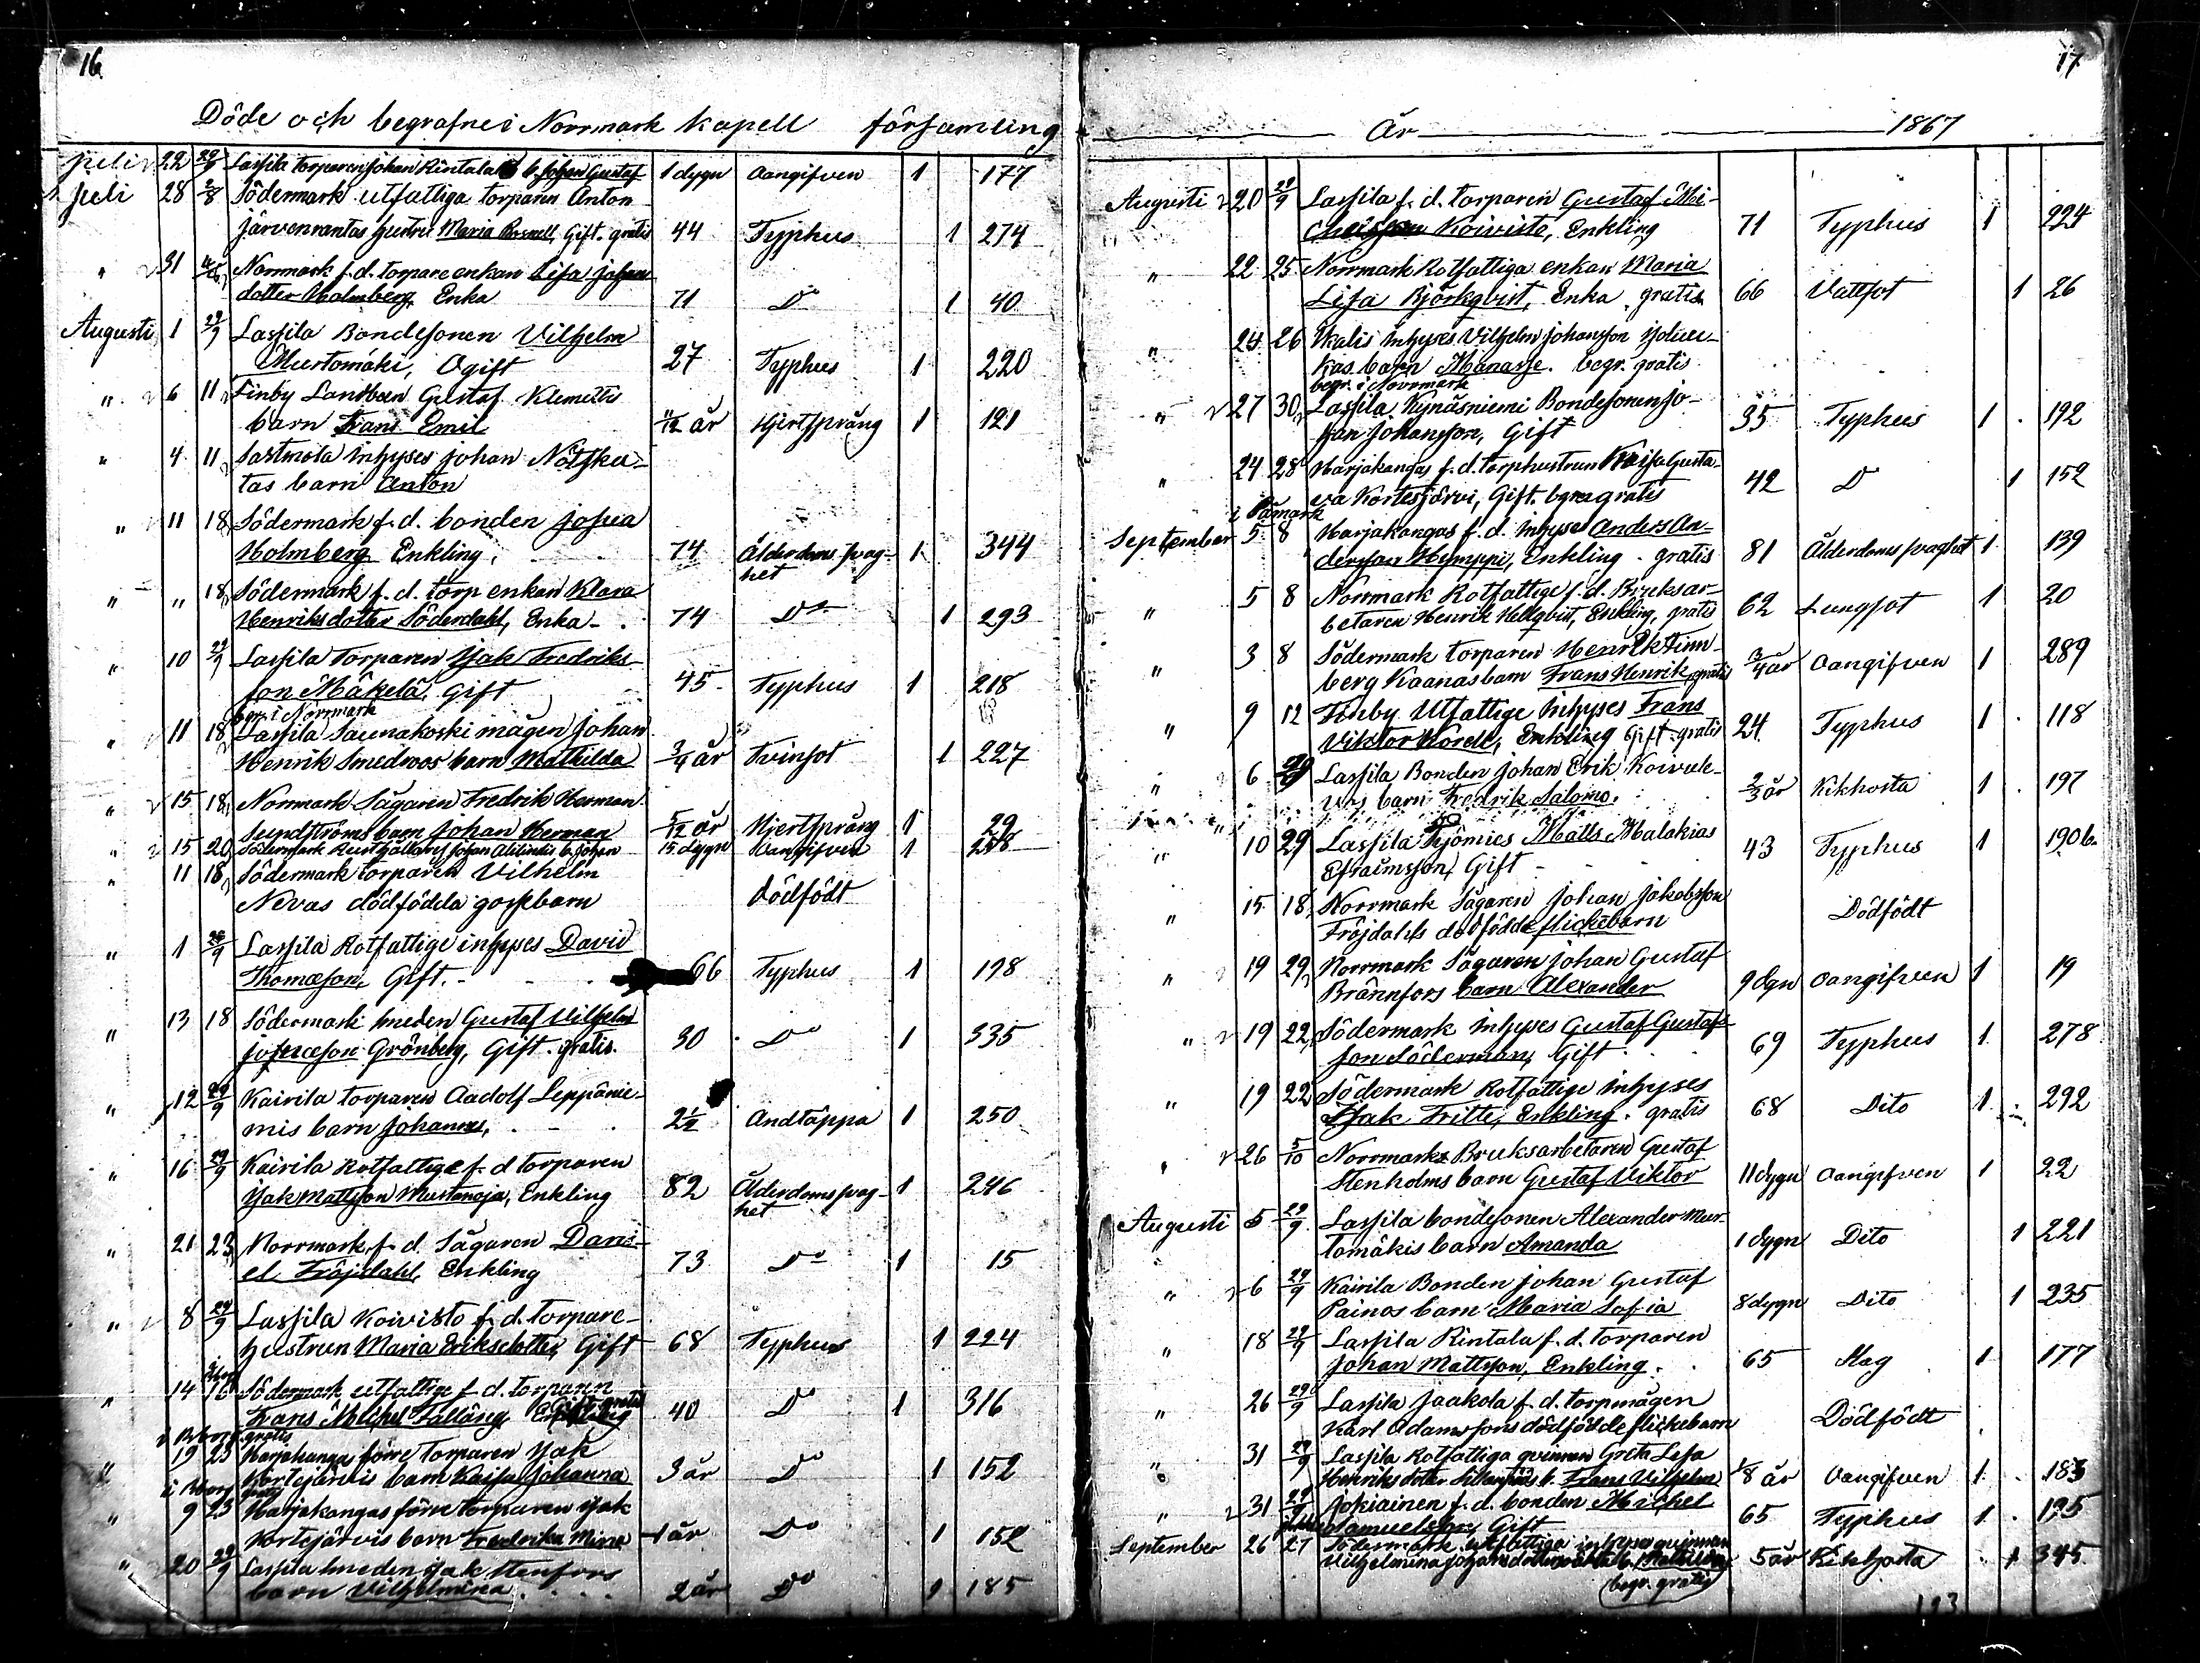 16.
Döde och begrafne i Norrmark kapell församling
Juli 22 29/9 Lassila torparen Johan Rintalas b. Johan Gustaf 1 dygn Oangifven 1 177
Juli 28 2/8 Södermark utfattiga torparen Anton
Järvenrantas hustru Maria, Gift. gratis 44 Typhus 1 274
" 31 Norrmark f. d. torpare enkan Lisa Johans
dotter Holmberg, Enka 71 Do 1 40
Augusti 1 29/9 Lassila Bondesonen Vilhelm
Murtomäki, Ogift 27 Typhus 1 220
" 6 11 Finby Landbon Gustaf Klemetis
barn Frans Emil 11/12 år Hjertsprång 1 121
" 4 11 Sastmola inhyses Johan Nötku-
tas barn Anton
" 11 18 Södermark f. d. bonden Josua
Holmberg Enkling. 74 Ålderdomssvag-
het 1 344
" " 18 Södermark f. d. torp enkan Klara
Henriksdotter Söderdahl, Enka 74 Do 1 293
" 10 29/9 Lassila Torparen Isak Fredriks-
son Mäkelä, Gift 45 Typhus 1 218
begr. i Norrmark
" 11 18 Lassila Saunakoski mågen Johan
Henrik Smedroos barn Mathilda 3/4 år Tvinsot 1 227
" 15 18 Norrmark Sågaren Fredrik Herman
Sundströms barn Johan Herman 5/12 år Hjertsprång 1 29
" 15 20 Södermark Johan b. Johan 15 dygn Oangifven 1
" 11 18 Södermark torparen Vilhelm
Nevas dödfödda gossebarn Dödfödt
" 1 29/9 Lassila Rotfattige inhyses David
Thomasson, Gift. 66 Typhus 1 198
" 13 18 Södermark smeden Gustaf Vilhelm
Josuasson Grönberg, Gift. gratis. 30 Do 1 335
" 12 29/9 Kairila torparen Aadolf Leppänie-
mis barn Johannes, 2½ Andtäppa 1 250
" 16 29/9 Kairila Rotfattige f. d torparen
Isak Mattsson Mustanoja, Enkling 82 Ålderdomssvag-
het 1 246
" 21 23 Norrmark f. d. Sågaren Dani-
el Fröjdahl, Enkling 73 Do 1 15
" 8 29/9 Lassila Koivisto f. d. torpare-
hustrun Maria Eriksdotter, Gift 68 Typhus 1 224
" 14 16 Södermark utfattige f. d. torparen
Frans Michel Falläng, gratis 40 Do 1 316
gratis
" 19 23 Harjakangas förre Torparen Isak
Kortejärvis barn Kaisa Johanna 3 år Do 1 152
" 9 23 Harjakangas förre torparen Isak
Kortejärvis barn Fredrika Mina 1 år Do 1 152
" 20 29/9 Lassila smeden Isak Stenfors
barn Vilhelmina. 2 år Do 1 185
17.
År 1867
Augusti 20 29/9 Lassila f. d. torparen Gustaf Mi-
chelsson Koivisto, Enkling 71 Typhus 1 224
" 22 25 Norrmark Rotfattiga enkan Maria
Lisa Björkqvist, Enka. gratis 66 Vattsot 1 26
" 24 26 inhyses Vilhelm Johansson
kas barn Manasse. begr. gratis
begr. i Norrmark
" 27 30 Lassila Kynäsniemi Bondesonen Jo-
han Johansson, Gift 35 Typhus 1 192
" 24 28 Harjakangas f. d. torphustrun Kaisa Gusta-
va Kortesjärvi, Gift. gratis 42 D 1 152
i Påmark
September 5 8 Harjakangas f. d. inhyses Anders An-
dersson Humppi, Enkling. gratis 81 Ålderdomssvaghet 1 139
" 5 8 Norrmark Rotfattige f. d. Bruksar-
betaren Henrik Hellqvist, Enkling, gratis 62 Lungsot 1 20
" 3 8 Södermark torparen Henrik Finn-
berg Kaanas barn Frans Henrik, gratis 3/4 år Oangifven 1 289
" 9 12 Finby Utfattige inhyses Frans
Viktor Norell, Enkling Gift. gratis 24 Typhus 1 118
" 6 29 Lassila Bonden Johan Erik Koivule-
barn Fredrik Salomo. 2/3 år Kikhosta 1 197
" 10 29 Lassila Matts Malakias
Efraimsson, Gift 43 Typhus 1 190 b.
" 15 18 Norrmark Sågaren Johan Jakobsson
Fröjdahls dödfödde flickebarn Dödfödt
" 19 29 Norrmark Sågaren Johan Gustaf
Brännfors barn Alexander 9 dgn Oangifven 1 19
" 19 22 Södermark inhyses Gustaf Gustafs-
son Söderman, Gift 69 Typhus 1 278
" 19 22 Södermark Rotfattige inhyses
Isak Fritte, Enkling. gratis 68 Dito 1 292
" 26 5/10 Norrmark Bruksarbetaren Gustaf
Stenholms barn Gustaf Viktor 11 dygn Oangifven 1 22
Augusti 5 29/9 Lassila bondesonen Alexander Mur-
tomäkis barn Amanda 1 dygn Dito 1 221
" 6 29/9 Kairila Bonden Johan Gustaf
Painos barn Maria Sofia 8 dygn Dito 1 235
" 18 29/9 Lassila Rintala f. d. torparen
Johan Mattsson, Enkling. 65 Slag 1 177
" 26 29/9 Lassila Jaakola f. d. torpmågen
Karl Adamssons dödfödde flickebarn Dödfödt
" 31 29/9 Lassila Rotfattiga qvinnan Greta Lisa
Henriksdotter b. Frans Vilhelm 1/8 år Oangifven 1 183
" 31 29/9 Jokiainen f. d. bonden Michel
Samuelsson, Gift 65 Typhus 1 195
September 26 27 Södermark utfattiga inhyses qvinnan
Vilhelmina Johansdotter b. Mathilda 5 år Kikhosta 1 345
begr. gratis